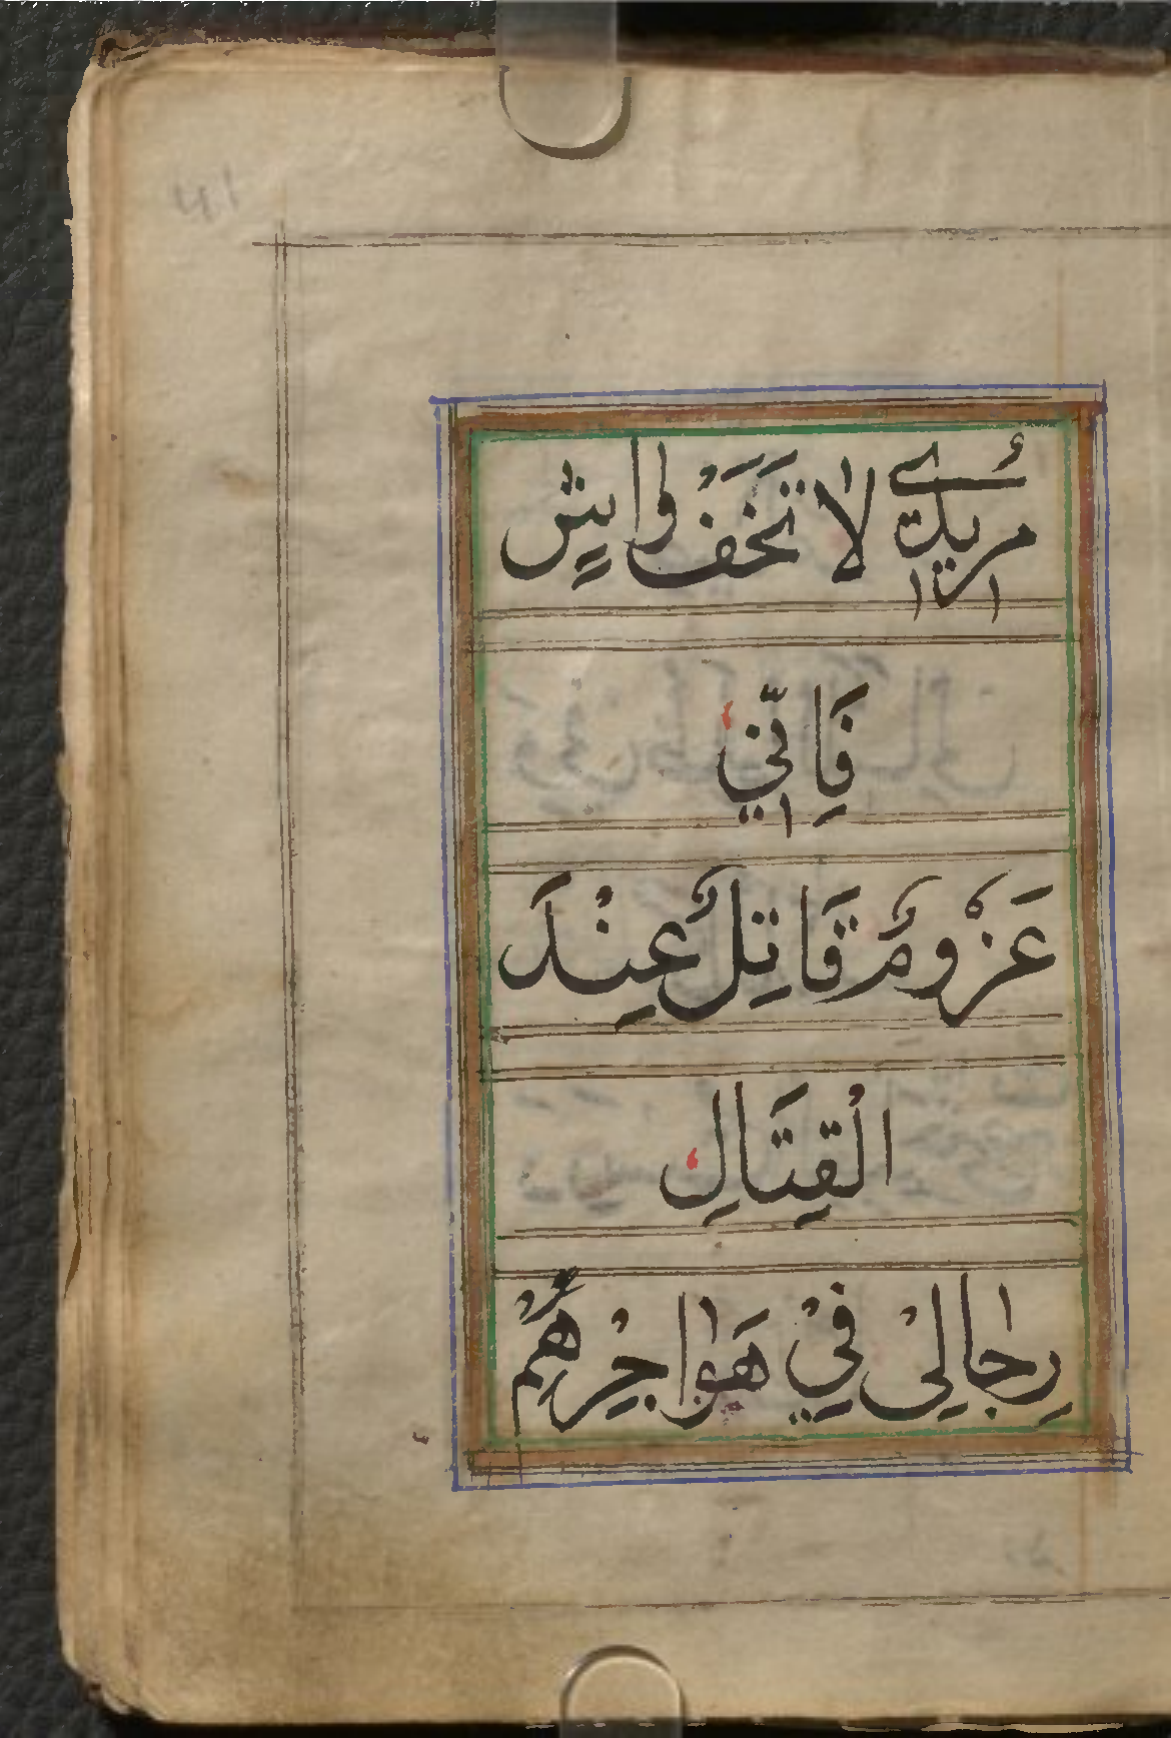 مُرِيدِي لَا تَخَفْ وَاشٍ
فَاِنِّي
عَزُوْمٌ قَاتِلٌ عِنْدَ
الْقِتَالِ
رِجَالِىْ فِيْ هَوَاجِرْهُمْ